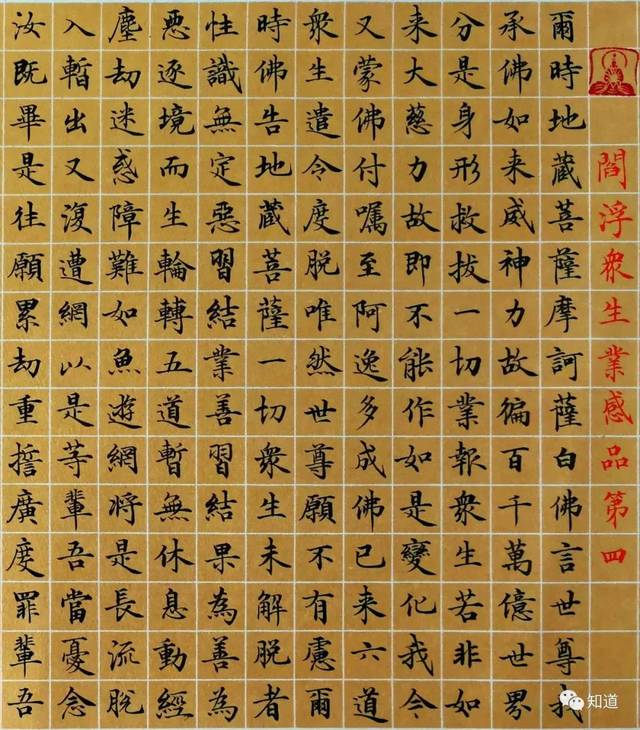 閻浮衆生業感品第四
爾時地藏菩薩摩訶薩白佛言世尊我
承佛如来威神力故徧百千萬億世界
分是身形救拔一切業報衆生若非如
来大慈力故即不能作如是變化我今
又蒙佛付嘱至阿逸多成佛已来六道
衆生遣令度脱唯然世尊願不有慮爾
時佛告地藏菩薩一切衆生未解脱者
性識無定惡習結業善習結果為善為
惡逐境而生輪轉五道暫無休息動經
塵劫迷惑障難如魚遊網将是長流脱
入暫出又復遭網以是等輩吾當憂念
汝既畢是往願累劫重誓廣度罪輩吾
知道